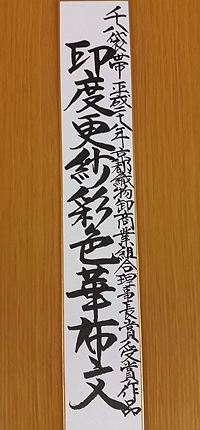 千八袋帯 平成二十八年京都織物卸商業組合理事長賞受賞作品
印度更紗彩色華布文